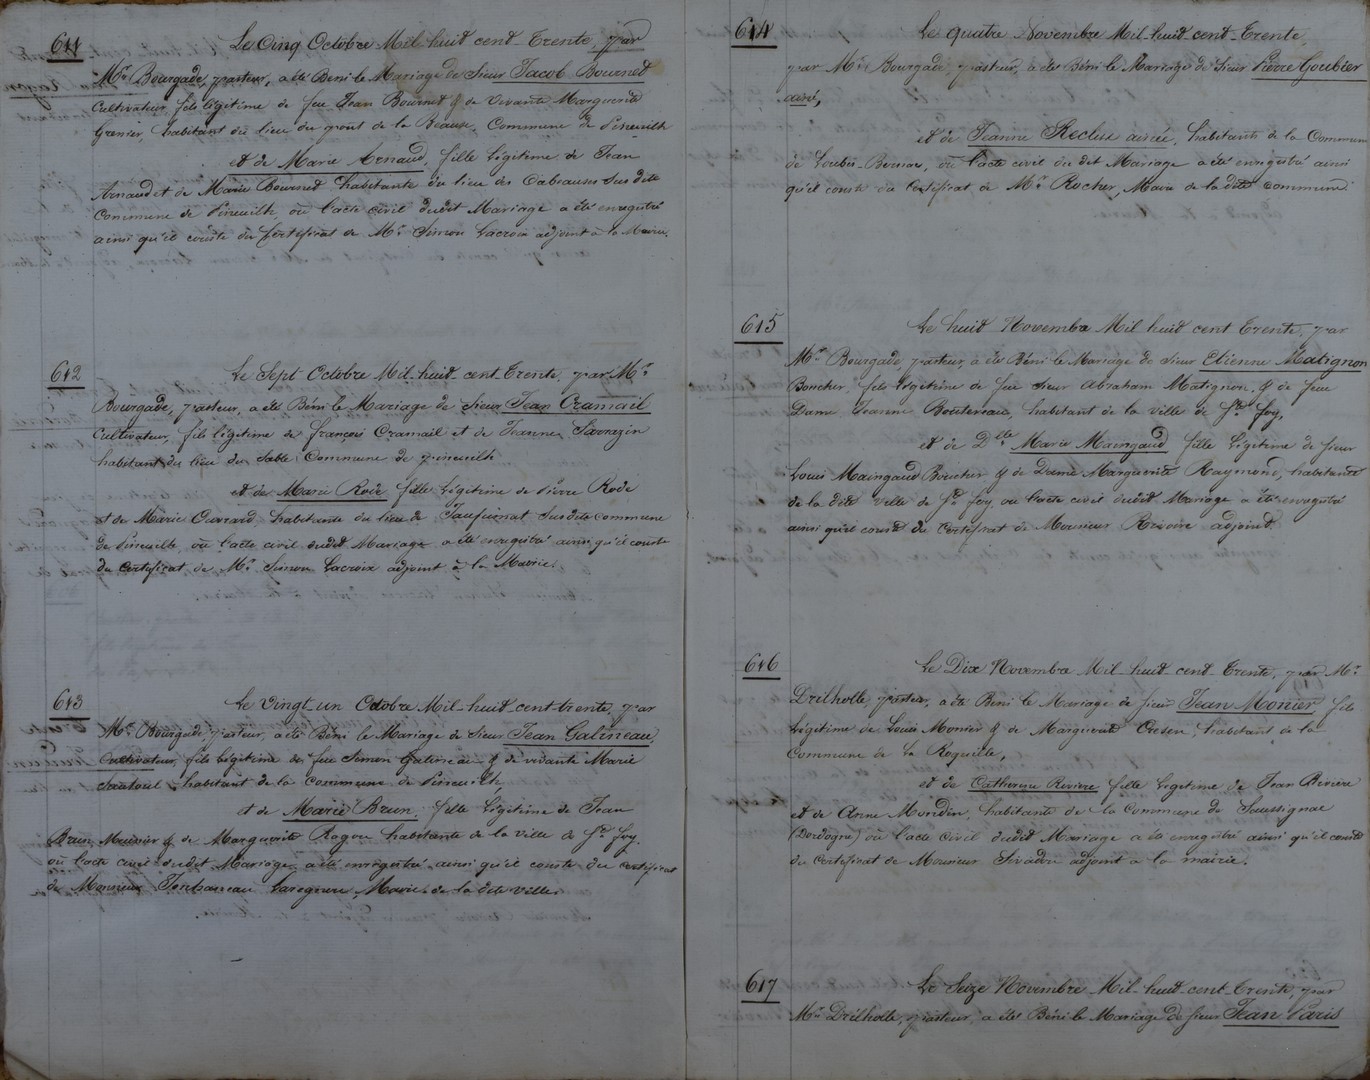 611
Le Cinq Octobre Mil-huit cent-Trente, par
Mr. Bourgade, pasteur, a été Béni le Mariage de Sieur Jacob Bournet
Cultivateur, fils légitime de feu Jean Bournet & de vivante Marguerite
Granier, habitant du lieu du pont de la Beauze, Commune de Pineuilh
et de Marie Arnaud, fille légitime de Jean
Arnaud et de Marie Bournet habitante du lieu des Dabeauses susdite
Commune de Pineuilh, où l'acte civil dudit Mariage a été enregistré
ainsi qu'il conste du Certificat de Mr. Simon Lacroix adjoint à la Mairie.
612
Le Sept Octobre Mil-huit-cent-Trente, par Mr.
Bourgade, pasteur, a été Béni le Mariage de Sieur Jean Cramail
Cultivateur, fils légitime de François Cramail et de Jeanne Sarrazin
habitant du lieu du Sable Commune de Pineuilh
et de Marie Rode fille légitime de Pierre Rode
et de Marie Ouvrard habitante du lieu de susdite commune
de Pineuilh, où l'acte civil dudit Mariage a été enregistré ainsi qu'il conste
du Certificat de Mr. Simon Lacroix adjoint à la Mairie.
613
Le vingt-un Octobre Mil-huit-cent-trente, par
Mr. Bourgade, pasteur, a été Béni le Mariage de Sieur Jean Galineau,
Cultivateur, fils légitime de feu Simon Galineau & de vivante Marie
habitant de la Commune de Pineuilh,
et de Marie Brun, fille légitime de Jean
Brun, Meunier & de Marguerite Ragon habitante de la ville de Ste. Foy.
où l'acte civil dudit Mariage a été enregistré ainsi qu'il conste du Certificat
de Monsieur Jonhaneau Laregnere, Maire de la dite ville.
614
Le quatre Novembre Mil-huit-cent-Trente,
par Mr. Bourgade, pasteur, a été Béni le Mariage de Sieur Pierre Goubier
ainé,
et de Jeanne Reclus ainée, habitante de la Commune
de Loubès-Bernac, où l'acte civil du dit Mariage a été enregistré ainsi
qu'il conste du Certificat de Mr. Rocher, Maire de la dite commune
615
Le huit Novembre Mil huit cent Trente, par
Mr. Bourgade, pasteur, a été Béni le Mariage de Sieur Etienne Matignon
Boucher, fils légitime de feu Sieur Abraham Matignon, & de feue
Dame Jeanne Boutereau, habitant de la ville de Ste. Foy,
et de Dlle. Marie Maingaud fille légitime de Sieur
Louis Maingaud Boucher & de Dame Marguerite Raymond, habitante
de la dite ville de Ste. Foy, où l'acte civil dudit Mariage a été enregistré
ainsi qu'il conste du Certificat de Monsieur Rivoire adjoint.
616
Le Dix Novembre Mil-huit-cent-Trente, par Mr.
Drilholle, pasteur, a été Béni le Mariage de Sieur Jean Monier fils
légitime de Louis Monier & de Marguerite habitant de la
Commune de La Roquille,
et de Catherine Rivière fille légitime de Jean Rivière
et de Anne Mondin, habitante de la Commune de Saussignac
(Dordogne) où l'acte civil dudit Mariage a été enregistré ainsi qu'il conste
du Certificat de Monsieur Sivadon adjoint à la mairie.
617
Le Seize Novembre Mil-huit-cent-Trente, par
Mr. Drilholle, pasteur, a été Béni le Mariage de Sieur Jean Paris